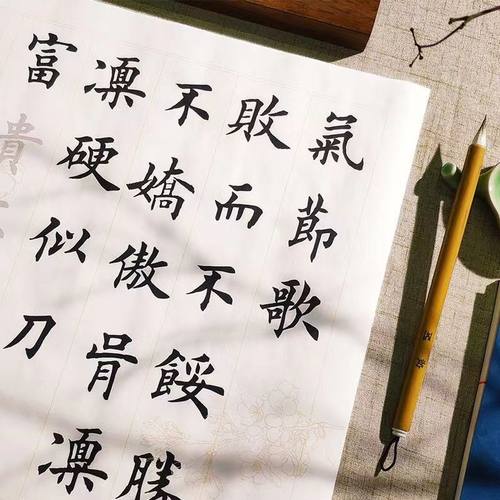 氣節歌
敗而不餒勝
不嬌傲骨凛
凛硬似刀
富
貴